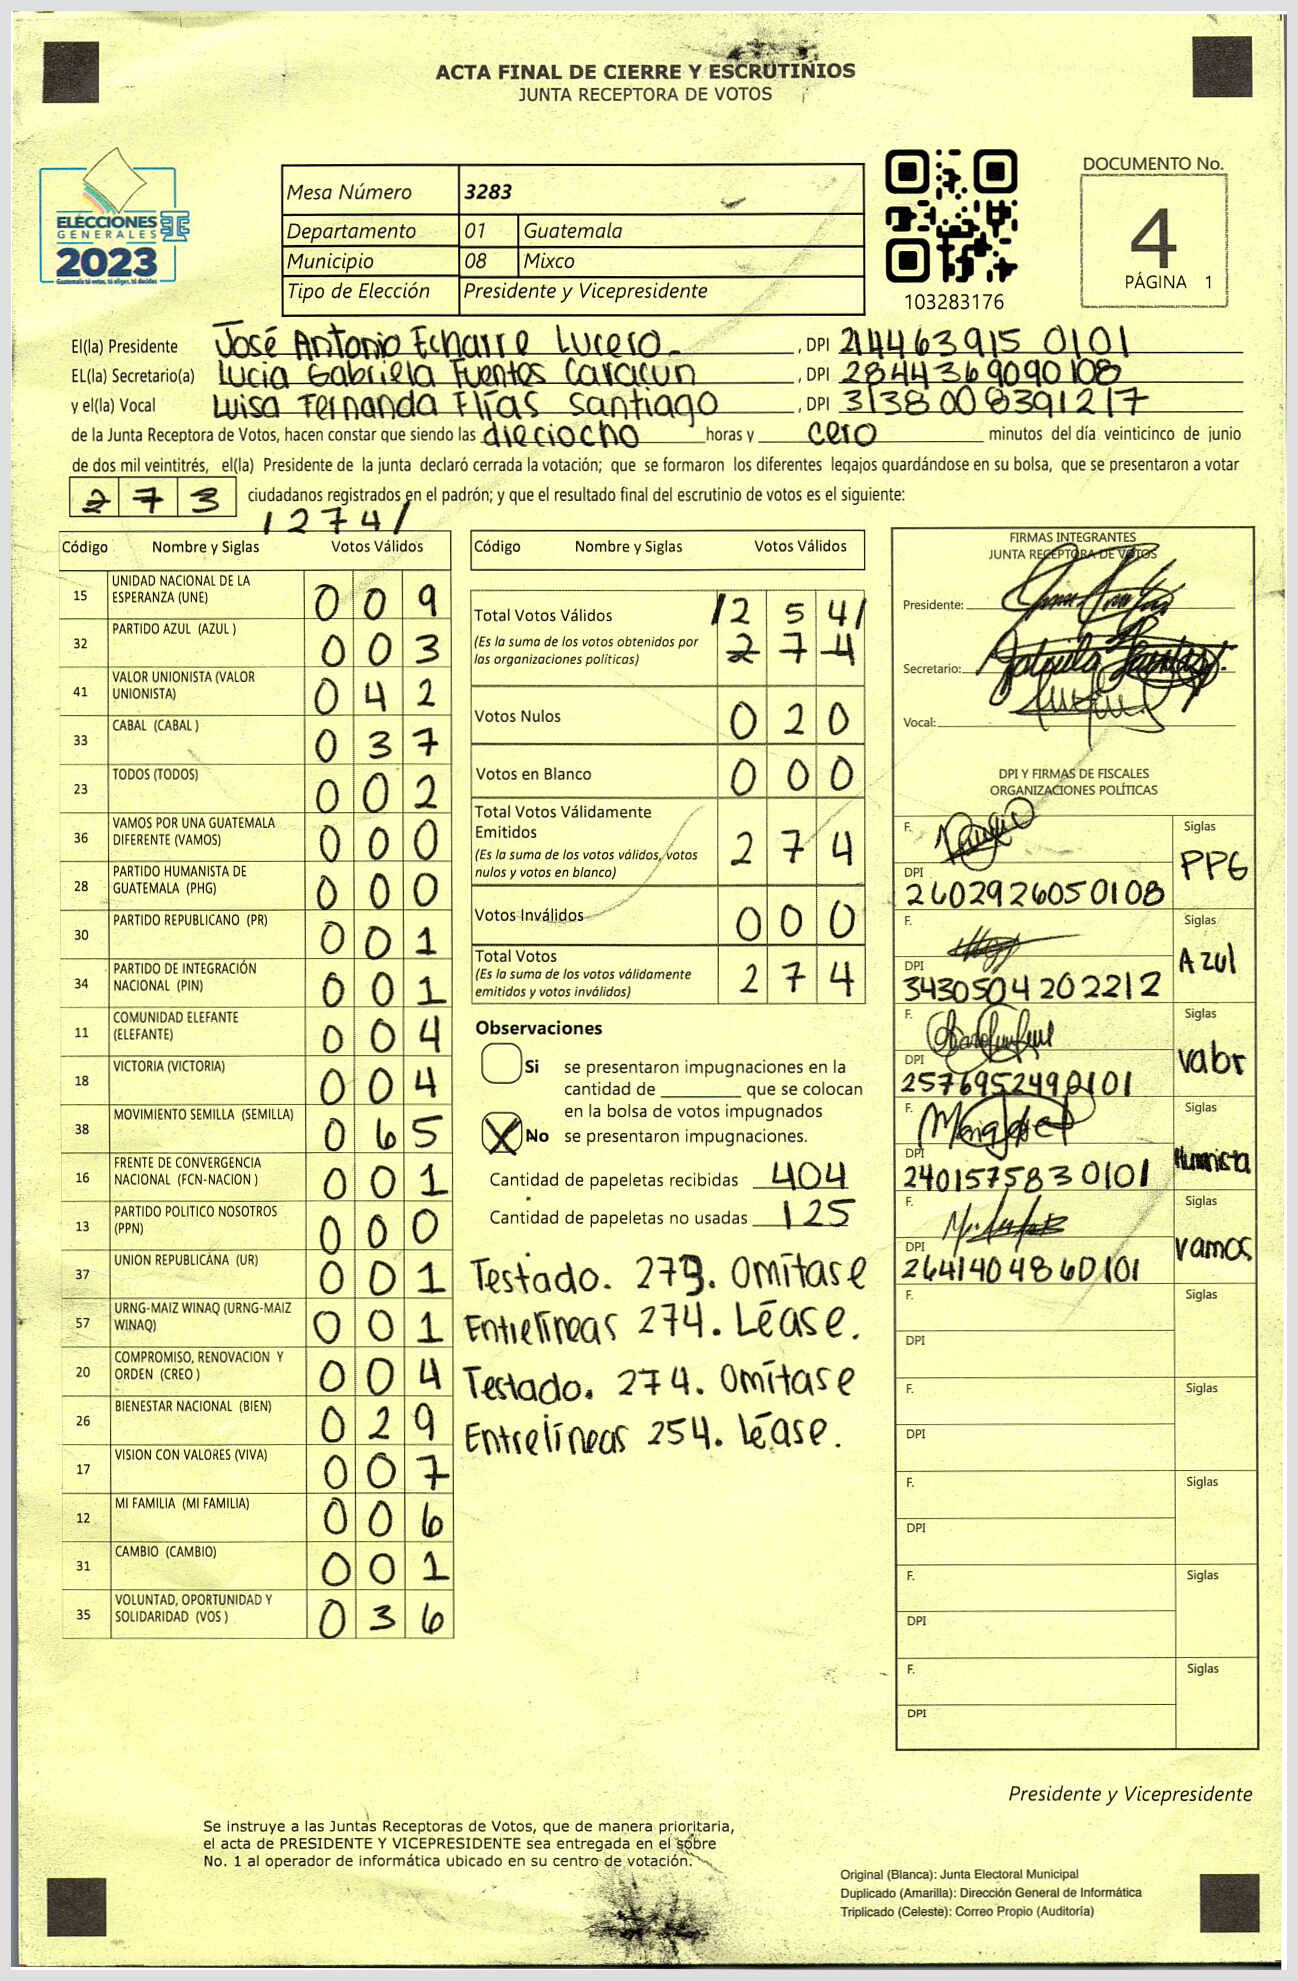 ACTA FINAL DE CIERRE Y ESCRUTINIOS
JUNTA RECEPTORA DE VOTOS
ELECCIONES
GENERALES
2023
Guatemala tú votas, tú eliges, tú decides
Mesa Número 3283
Departamento 01 Guatemala
Municipio 08 Mixco
Tipo de Elección Presidente y Vicepresidente
103283176
DOCUMENTO No.
4
PÁGINA 1
El(la) Presidente José Antonio Echarre Lucero , DPI 214463915 0101
EL(la) Secretario(a) Lucía Gabriela Fuentes Caracun , DPI 2844369090108
y el(la) Vocal Luisa Fernanda Elías Santiago , DPI 3138008391217
de la Junta Receptora de Votos, hacen constar que siendo las dieciocho horas y cero minutos del día veinticinco de junio
de dos mil veintitrés, el(la) Presidente de la junta declaró cerrada la votación; que se formaron los diferentes legajos guardándose en su bolsa, que se presentaron a votar
273 ciudadanos registrados en el padrón; y que el resultado final del escrutinio de votos es el siguiente:
/274/
Código Nombre y Siglas Votos Válidos
15 UNIDAD NACIONAL DE LA ESPERANZA (UNE) 009
32 PARTIDO AZUL (AZUL ) 003
41 VALOR UNIONISTA (VALOR UNIONISTA) 042
33 CABAL (CABAL ) 037
23 TODOS (TODOS) 002
36 VAMOS POR UNA GUATEMALA DIFERENTE (VAMOS) 000
28 PARTIDO HUMANISTA DE GUATEMALA (PHG) 000
30 PARTIDO REPUBLICANO (PR) 001
34 PARTIDO DE INTEGRACIÓN NACIONAL (PIN) 001
11 COMUNIDAD ELEFANTE (ELEFANTE) 004
18 VICTORIA (VICTORIA) 004
38 MOVIMIENTO SEMILLA (SEMILLA) 065
16 FRENTE DE CONVERGENCIA NACIONAL (FCN-NACION ) 001
13 PARTIDO POLITICO NOSOTROS (PPN) 000
37 UNION REPUBLICANA (UR) 001
57 URNG-MAIZ WINAQ (URNG-MAIZ WINAQ) 001
20 COMPROMISO, RENOVACION Y ORDEN (CREO ) 004
26 BIENESTAR NACIONAL (BIEN) 029
17 VISION CON VALORES (VIVA) 007
12 MI FAMILIA (MI FAMILIA) 006
31 CAMBIO (CAMBIO) 001
35 VOLUNTAD, OPORTUNIDAD Y SOLIDARIDAD (VOS ) 036
Código Nombre y Siglas Votos Válidos
Total Votos Válidos /254/
(Es la suma de los votos obtenidos por las organizaciones políticas) 274
Votos Nulos 020
Votos en Blanco 000
Total Votos Válidamente Emitidos
(Es la suma de los votos válidos, votos nulos y votos en blanco) 274
Votos Inválidos 000
Total Votos
(Es la suma de los votos válidamente emitidos y votos inválidos) 274
Observaciones
Si se presentaron impugnaciones en la
cantidad de que se colocan
en la bolsa de votos impugnados
X No se presentaron impugnaciones.
Cantidad de papeletas recibidas 404
Cantidad de papeletas no usadas 125
Testado. 273. Omítase
Entrelíneas 274. Léase.
Testado. 274. Omítase
Entrelíneas 254. Léase.
FIRMAS INTEGRANTES
JUNTA RECEPTORA DE VOTOS
Presidente:
Secretario:
Vocal:
DPI Y FIRMAS DE FISCALES
ORGANIZACIONES POLÍTICAS
F. Siglas PPG
DPI 2602926050108
F. Siglas Azul
DPI 3430504202212
F. Siglas Valor
DPI 2576952490101
F. Siglas Humanista
DPI 2401575830101
F. Siglas Vamos
DPI 2641404860101
F. Siglas
DPI
F. Siglas
DPI
F. Siglas
DPI
F. Siglas
DPI
F. Siglas
DPI
Presidente y Vicepresidente
Se instruye a las Juntas Receptoras de Votos, que de manera prioritaria,
el acta de PRESIDENTE Y VICEPRESIDENTE sea entregada en el sobre
No. 1 al operador de informática ubicado en su centro de votación.
Original (Blanca): Junta Electoral Municipal
Duplicado (Amarilla): Dirección General de Informática
Triplicado (Celeste): Correo Propio (Auditoría)